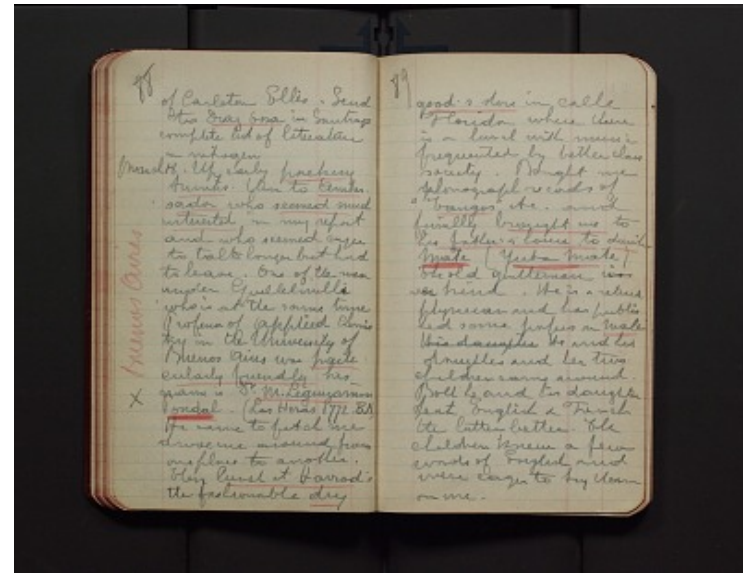 88
of Carleton Ellis. Send
to Diaz Ossa in Santiago
complete list of literature
on nitrogen
March 8. Up early packing
trunks. Then to Ambas
sador who seemed much
interested in my report
and who seemed eager
to talk longer but had
to leave. One of the men
under
who is at the same time
Professor of applied chemis
try in the University of
Buenos Aires was parti
cularly friendly his
name is Dr. M. Leguizamon
Pondal. (Las Heras 1772 BA)
He came to fetch me
drove me around from
one place to another.
Then lunch at Harrod's
the fashionable dry
Buenos Aires
X
89
good's store in calle
Florida where there
is a lunch with music
frequented by better class
society. Bought me
phonograph records of
"tangos" etc. and
finally brought me to
his father's house to drink
Mate (Yerba Mate)
Old gentleman
kind. He is a retired
physician and has publis
hed some papers on Mate
His daughter and his
and her two
children came around.
Both he and his daughter
English & French
the latter better. The
children knew a few
words of English and
were eager to try them
on me.